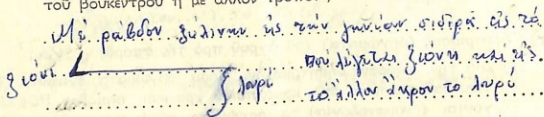 τοῦ βουκέντρου ἢ μὲ ἄλλον τρόπον
Μέ ράβδον ξύλινην εἰς τήν γωνίαν σιδερά εἰς τό
ξιόνι που λέγεται ξιόνη και εἰς
λουρί το ἄλλον ἄκρον το λουρί